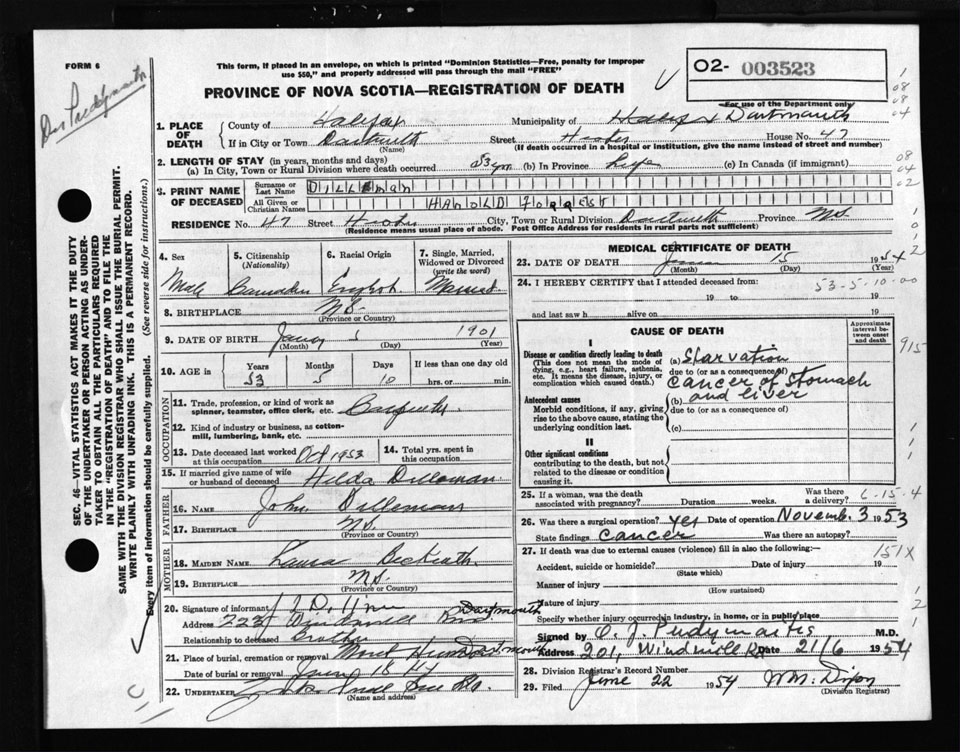 FORM 6
This form, if placed in an envelope, on which is printed "Dominion Statistics—Free, penalty for improper
use $50," and properly addressed will pass through the mail "FREE"
PROVINCE OF NOVA SCOTIA—REGISTRATION OF DEATH
02- 003523
For use of the Department only
1. PLACE OF DEATH
County of Halifax Municipality of Dartmouth
If in City or Town Dartmouth Street House No. 47
(Name) (If death occurred in a hospital or institution, give the name instead of street and number)
2. LENGTH OF STAY (in years, months and days)
(a) In City, Town or Rural Division where death occurred 53 yrs (b) In Province Life (c) In Canada (if immigrant)
3. PRINT NAME OF DECEASED
Surname or Last Name DILLEMAN
All Given or Christian Names HAROLD FORREST
RESIDENCE No. 47 Street City, Town or Rural Division Dartmouth Province N.S.
(Residence means usual place of abode. Post Office Address for residents in rural parts not sufficient)
4. Sex
Male
5. Citizenship (Nationality)
Canadian
6. Racial Origin
English
7. Single, Married, Widowed or Divorced (write the word)
Married
8. BIRTHPLACE N.S.
(Province or Country)
9. DATE OF BIRTH 5 1901
(Month) (Day) (Year)
10. AGE in Years Months Days If less than one day old
53 5 10 hrs. or min.
OCCUPATION
11. Trade, profession, or kind of work as
spinner, teamster, office clerk, etc. Carpenter
12. Kind of industry or business, as cotten-
mill, lumbering, bank, etc.
13. Date deceased last worked at this occupation Oct 1953
14. Total yrs. spent in this occupation
15. If married give name of wife
or husband of deceased Hilda
FATHER
16. Name John
17. Birthplace N.S.
(Province or Country)
MOTHER
18. MAIDEN NAME Laura
19. BIRTHPLACE N.S.
(Province or Country)
20. Signature of informant
Address 222 Windmill Dartmouth
Relationship to deceased Brother
21. Place of burial, cremation or removal Dartmouth
Date of burial or removal June 18
22. UNDERTAKER
(Name and address)
MEDICAL CERTIFICATE OF DEATH
23. DATE OF DEATH 15 1954
(Month) (Day) (Year)
24. I HEREBY CERTIFY that I attended deceased from:
53-5-10-00
19 to 19
and last saw h alive on 19
CAUSE OF DEATH
Approximate interval between onset and death
I
Disease or condition directly leading to death
(This does not mean the mode of
dying, e.g., heart failure, asthenia,
etc. It means the disease, injury, or
complication which caused death.)
(a) Starvation
due to (or as a consequence of)
cancer of stomach
and liver
Antecedent causes
Morbid conditions, if any, giving
rise to the above cause, stating the
underlying condition last.
(b)
due to (or as a consequence of)
(c)
II
Other significant conditions
contributing to the death, but not
related to the disease or condition
causing it.
25. If a woman, was the death
associated with pregnancy? Duration weeks. Was there a delivery?
6-15-4
26. Was there a surgical operation? Yes Date of operation November 3 1953
State findings Cancer Was there an autopsy?
27. If death was due to external causes (violence) fill in also the following:—
151X
Accident, suicide or homicide? Date of injury 19
(State which)
Manner of injury
(How sustained)
Nature of injury
Specify whether injury occurred in industry, in home, or in public place
Signed by M.D.
Address 201, Windmill Rd Date 21/6 1954
28. Division Registrar's Record Number
29. Filed June 22 1954
(Division Registrar)
SEC. 46—VITAL STATISTICS ACT MAKES IT THE DUTY
OF THE UNDERTAKER OR PERSON ACTING AS UNDER-
TAKER TO OBTAIN ALL THE PARTICULARS REQUIRED
IN THE "REGISTRATION OF DEATH" AND TO FILE THE
SAME WITH THE DIVISION REGISTRAR WHO SHALL ISSUE THE BURIAL PERMIT.
WRITE PLAINLY WITH UNFADING INK. THIS IS A PERMANENT RECORD.
Every item of information should be carefully supplied. (See reverse side for instructions.)